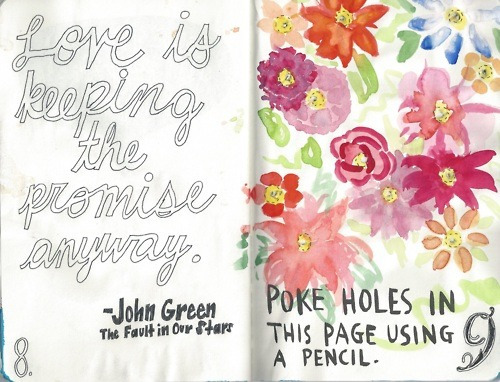 Love is
keeping
the
promise
anyway.
-John Green
The Fault in Our Stars
8.
POKE HOLES IN
THIS PAGE USING
A PENCIL.
9